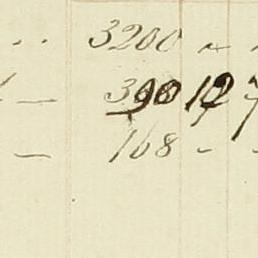 .. 3200 ~
— 390 12 7
— 168 - -